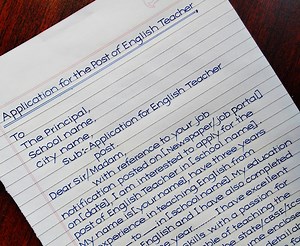 Application for the Post of English Teacher,
To
The Principal,
School name,
City name,
Sub:- Application for English Teacher
post
Dear Sir/Madam,
with reference to your job
notification posted on [Newspaper/job portal]
on [date], I am interested to apply for the
post of English Teacher in [school name].
My name is [your name], have three years
experience in teaching English from
to in [school name]. My education
English and I have also completed
I have excellent
skills with a passion for
teaching the
state/cesslics